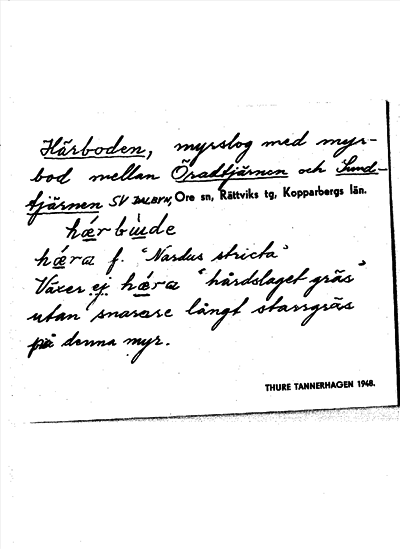 Härboden, myrslog med myr-
bod mellan Öradtjärnen och Sund-
tjärnen SV DALBYN, Ore sn, Rättviks tg, Kopparbergs län.
hǽr bùde
hǽra f. "Nardus stricta"
Växer ej hǽra "hårdslaget gräs"
utan snarare långt starrgräs
på denna myr.
THURE TANNERHAGEN 1948.